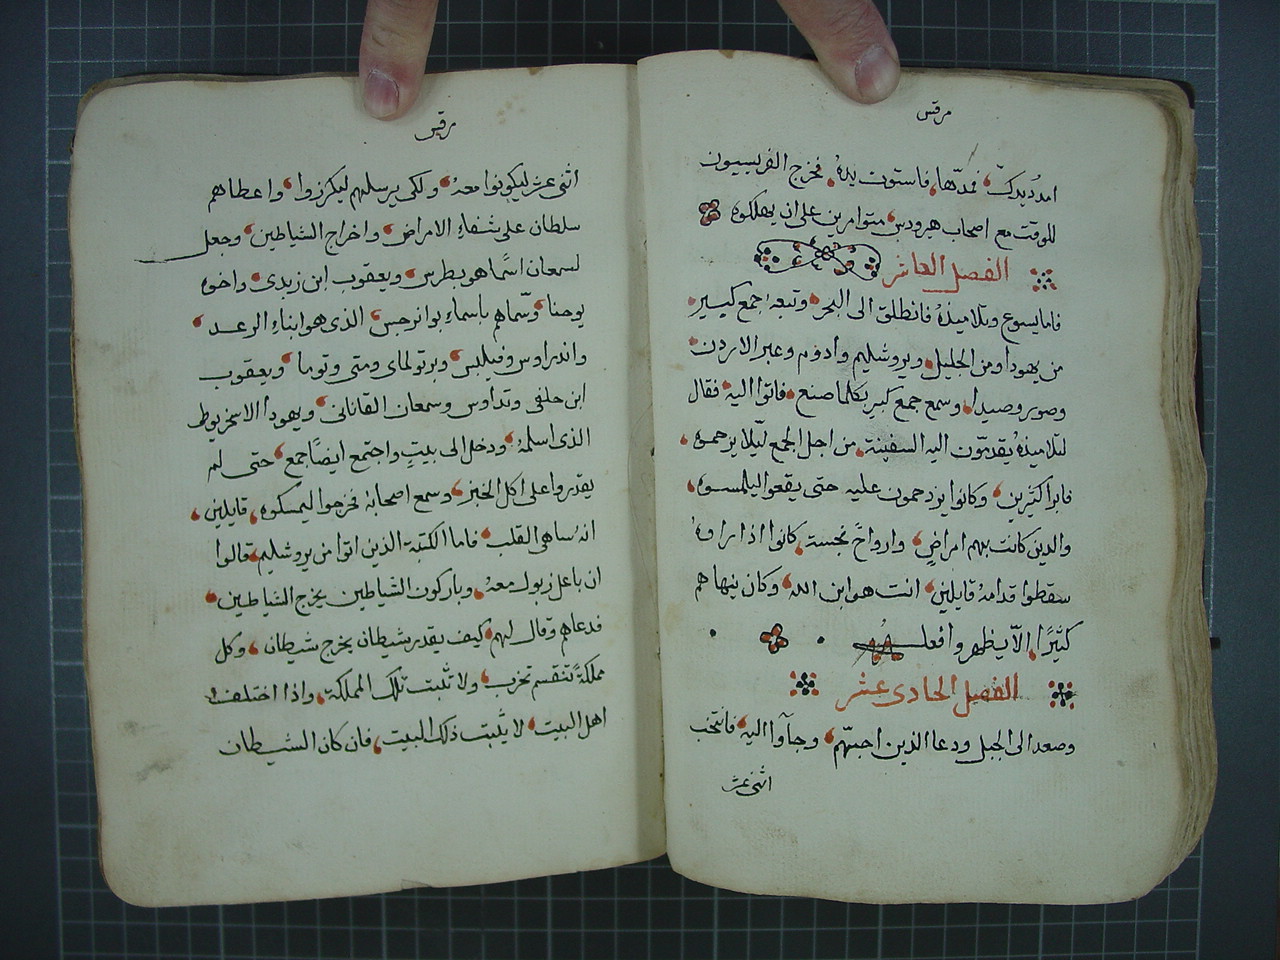 مرقس
امدد يدك، فمدّها، فاستوت يده، فخرج الفريسيون
للوقت مع اصحاب هيرودس متوامرين على ان يهلكوه
الفصل العاشر
فاما يسوع وتلاميذهُ فانطلق الى البحر، وتبعه جمع كبير،
من يهودا ومن الجليل، ويروشليم وادوم وعبر الاردن،
وصور وصيدا، وسمع جمع كبير بكلما صنع، فاتوا اليه فقال
لتلاميذهُ يقدمون اليه السفينة، من اجل الجمع ليلا يزحموه،
فابرا كثيرين، وكانوا يزدحمون عليه حتى يقعوا ليلمسوه،
والدين كانت بهم امراضٍ، وارواحٌ نجسة، كانوا اذا راوهُ
سقطوا قدامهُ قايلين، انت هو ابن الله، وكان ينهاهم
كثيرًا، الّا يظهروا
الفصل الحادى عشر
وصعد الى الجبل ودعا الذين احبهم، وجآوا اليه، فانتخب
اثنى عشر
مرقس
اثنى عشر ليكونوا معهُ، ولكى يرسلهم ليكرزوا، واعطاهم
سلطان على شفاءِ الامراض، واخراج الشياطين، وجعل
لسمعان اسمًا هو بطرس، ويعقوب ابن زبدى، واخوه
يوحنا، وسّماهم باسماءِ بوانرجس، الذى هو ابناءِ الرعد،
واندراوس وفيلبس، وبرتولماى ومتى وتوما، ويعقوب
ابن حلفى وتداوس وسمعان القانانى، ويهودا الاسخريوطى
الذى اسلمهُ، ودخل الى بيتٍ واجتمع ايضًا جمع، حتى لم
يقدروا على اكل الخبز، وسمع اصحابه فخرجوا ليمسكوه، قايلين،
انه ساهى القلب، فاما الكتبة الذين اتوا من يروشليم، قالوا
ان باعل زبول معهُ، وباركون الشياطين يخرج الشياطين،
فدعاهم وقال لهم، كيف يقدر شيطان يخرج شيطان، وكل
مملكةً تنقسم تخرب، ولا تثبت تلك المملكة، واذا اختلفت
اهل البيت، لا يثبت ذلك البيت، فان كان الشيطان